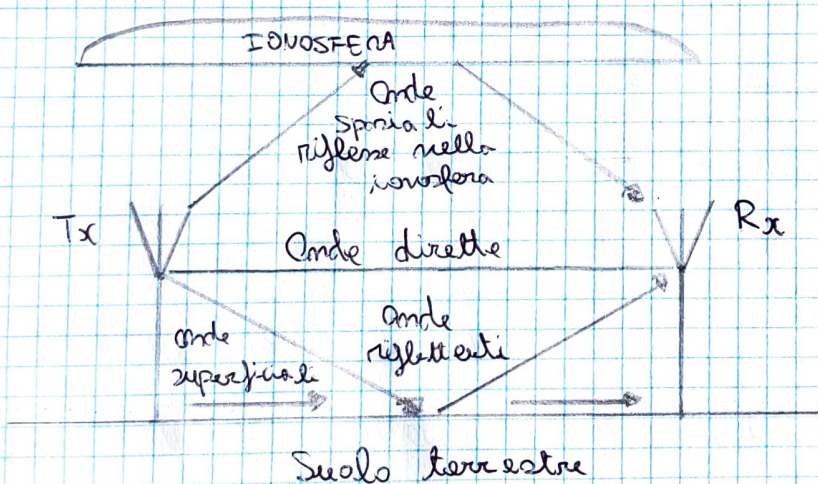 IONOSFERA
Onde
spaziali
riflesse nella
ionosfera
Tx
Rx
Onde dirette
onde
superficiali
onde
riflettenti
Suolo terrestre